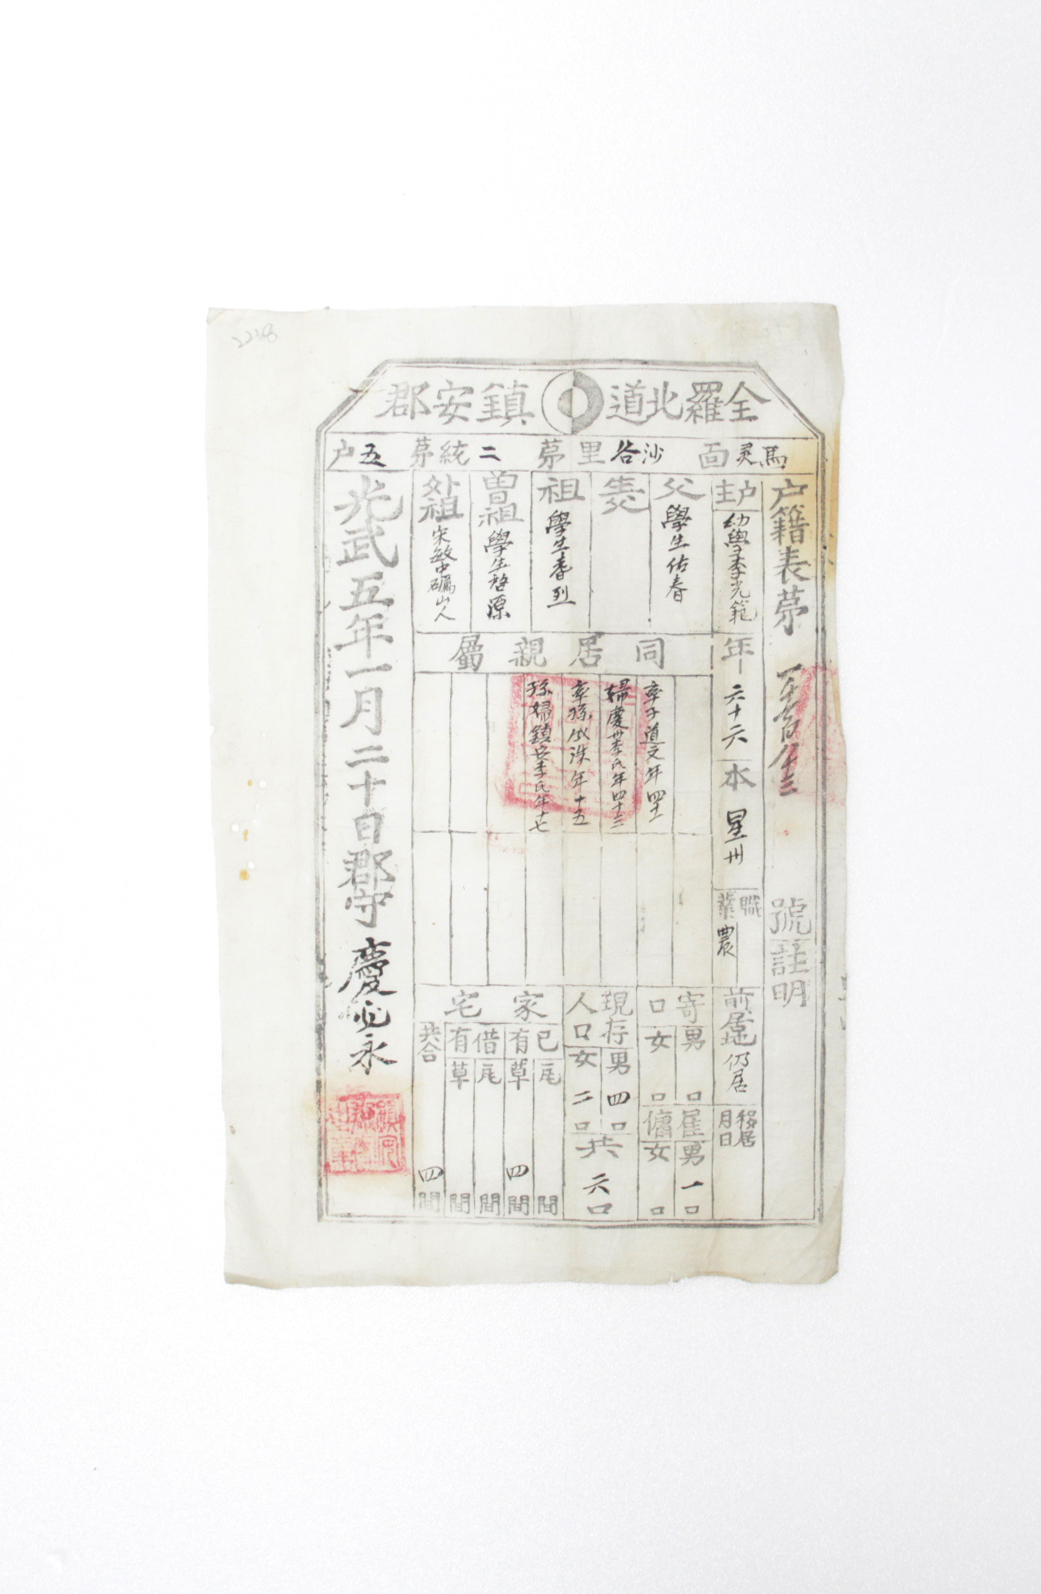 2238
全羅北道 鎭安郡
馬灵面 沙谷里 茅二統 茅五户
户籍表茅 號 註明
户主 幼學李光範
年 六十六
本 星州
職業 農
前居地 仍居
移居 月 日
父 學生佑春
生父
祖 學生春烈
曾祖 學生啓源
外祖 宋敏中礪山人
同居親屬
率子道文年四十
婦慶州李氏年四十二
率孫 洙年十五
孫婦鎭安李氏年十七
寄口 男 口 女 口
雇傭 男 一口 女 口
現存人口 男 四口 女 二口
共 六口
家宅
已有 瓦 間 草 四間
借有 瓦 間 草 間
共合 四間
光武五年一月二十日郡守 慶 永